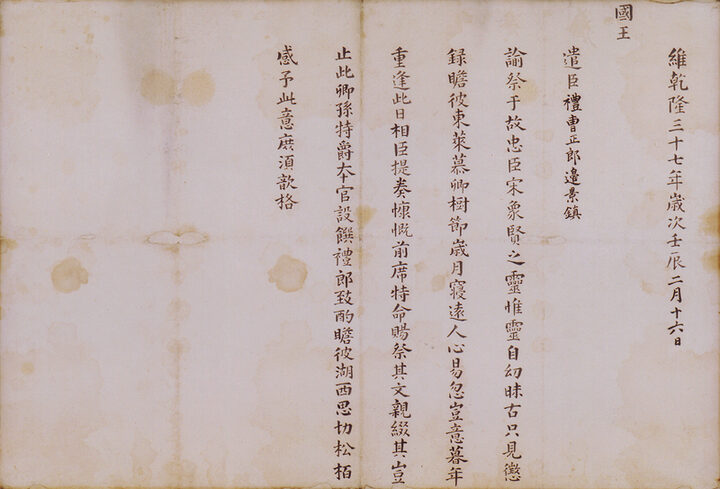 維乾隆三十七年歲次壬辰二月十六日
國王
遣臣禮曹正郎邊景鎮
諭祭于故忠臣宋象賢之靈惟靈自幼昧古只見懲
録瞻彼東萊慕卿樹節歲月寢遠人心易忽豈意暮年
重逢此日相臣提奏慷慨前席特命賜祭其文親綴其豈
止此卿孫特爵夲官設饌禮郎致酌瞻彼湖西思切松栢
感予此意庶湏歆格